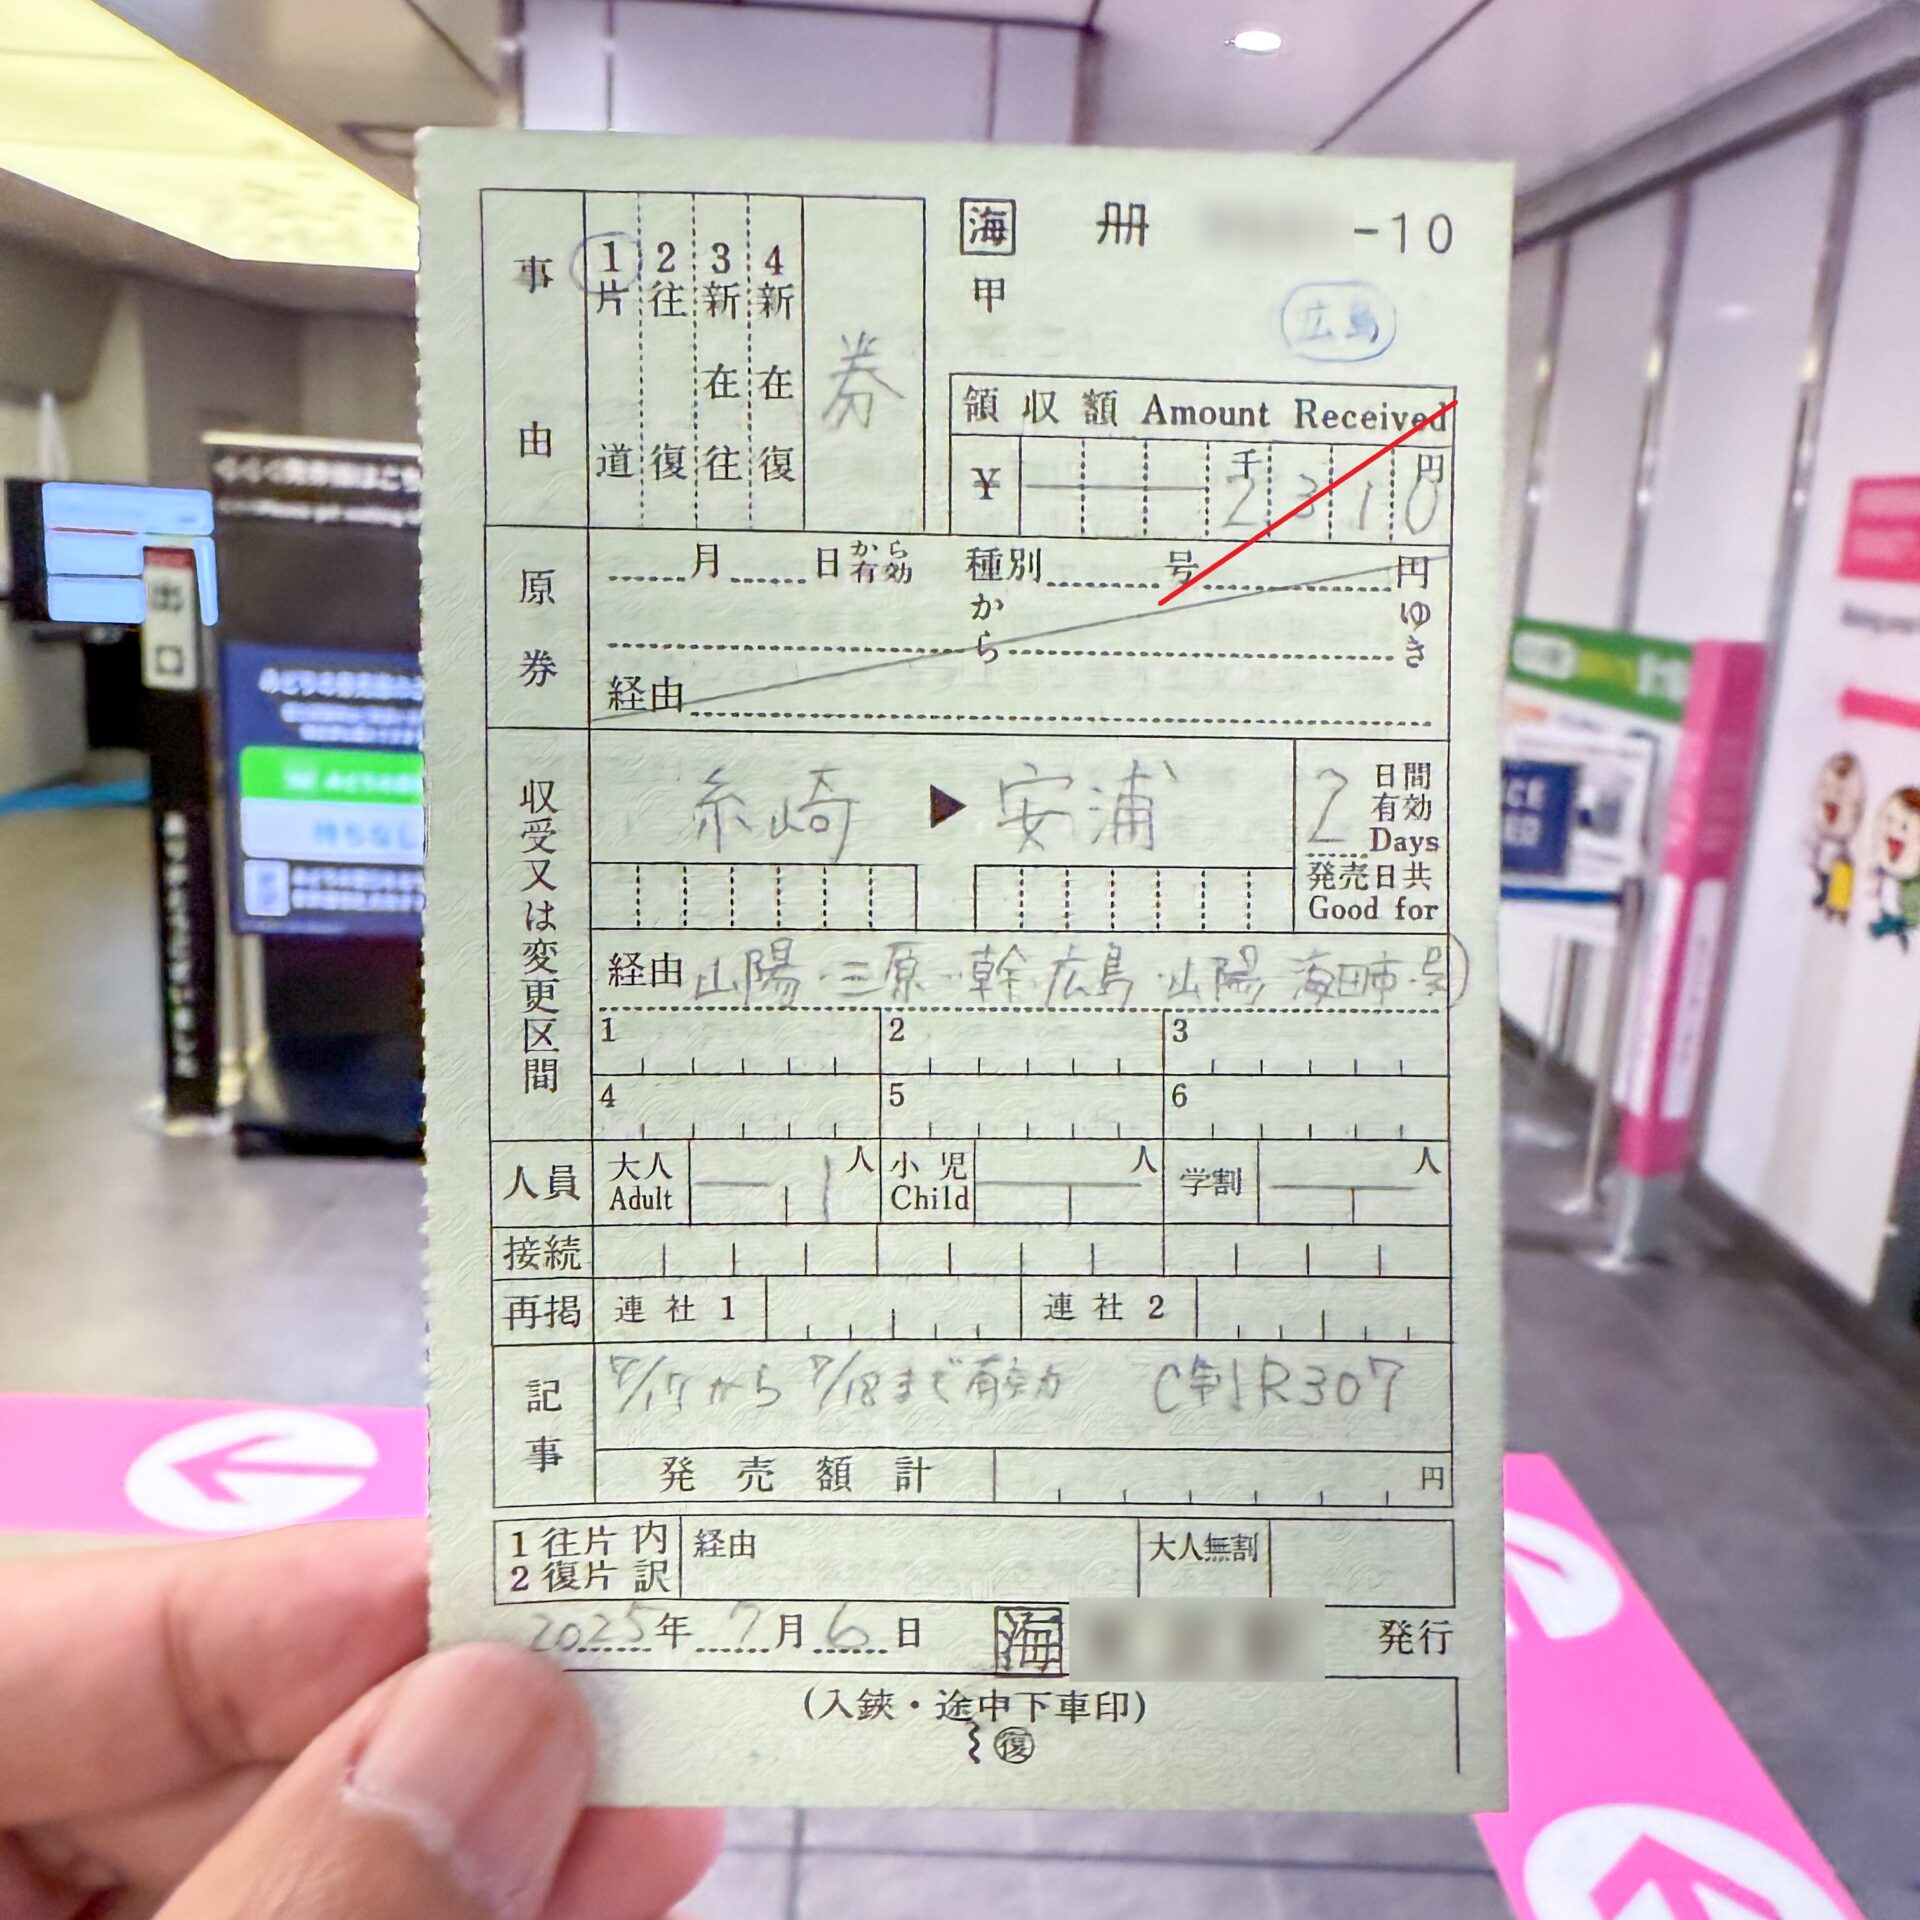 海 冊 -10
甲
広島
事由
1片道
2往復
3新在往
4新在復
券
領収額 Amount Received
¥ 千 円
2310
原券
月 日から有効 種別 号 円
から ゆき
経由
収受又は変更区間
糸崎 ▶ 安浦
2 日間有効 Days
発売日共 Good for
経由 山陽・三原・幹・広島・山陽・海田市・呉
1 2 3
4 5 6
人員 大人 Adult 1 人 小児 Child 人 学割 人
接続
再掲 連社1 連社2
記事
7/17から7/18まで有効 C制R307
発売額計 円
1往片 2復片 内訳 経由 大人無割
2025年7月6日 海 発行
(入鋏・途中下車印)
復